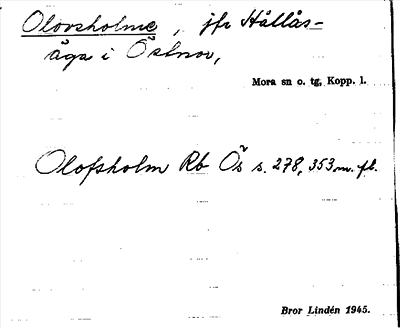 Olovsholme, jfr Hållås-
äga i Östnor,
Mora sn o. tg, Kopp. l.
Olofsholm Rb Ös s. 278, 353 m. fl.
Bror Lindén 1945.